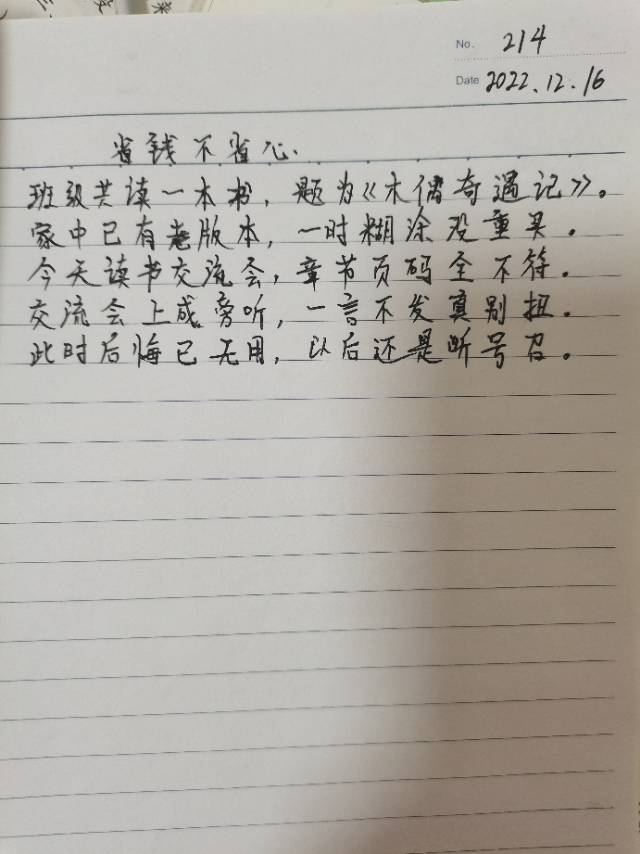 No. 214
Date 2022.12.16
省钱不省心.
班级共读一本书，题为《木偶奇遇记》。
家中已有老版本，一时糊涂没重买。
今天读书交流会，章节页码全不符。
交流会上成旁听，一言不发真别扭。
此时后悔已无用，以后还是听号召。